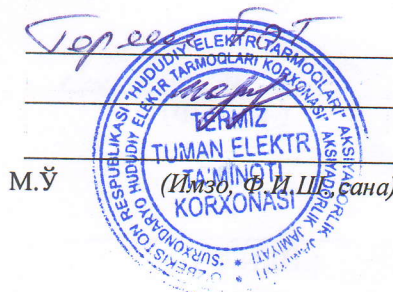 O'ZBEKISTON RESPUBLIKASI "HUDUDIY ELEKTR TARMOQLARI" AKSIYADORLIK JAMIYATI
"SURXONDARYO HUDUDIY ELEKTR TARMOQLARI KORXONASI" AKSIYADORLIK JAMIYATI
TERMIZ
TUMAN ELEKTR
TA'MINOTI
KORXONASI
М.Ў (Имзо, Ф.И.Ш., сана)